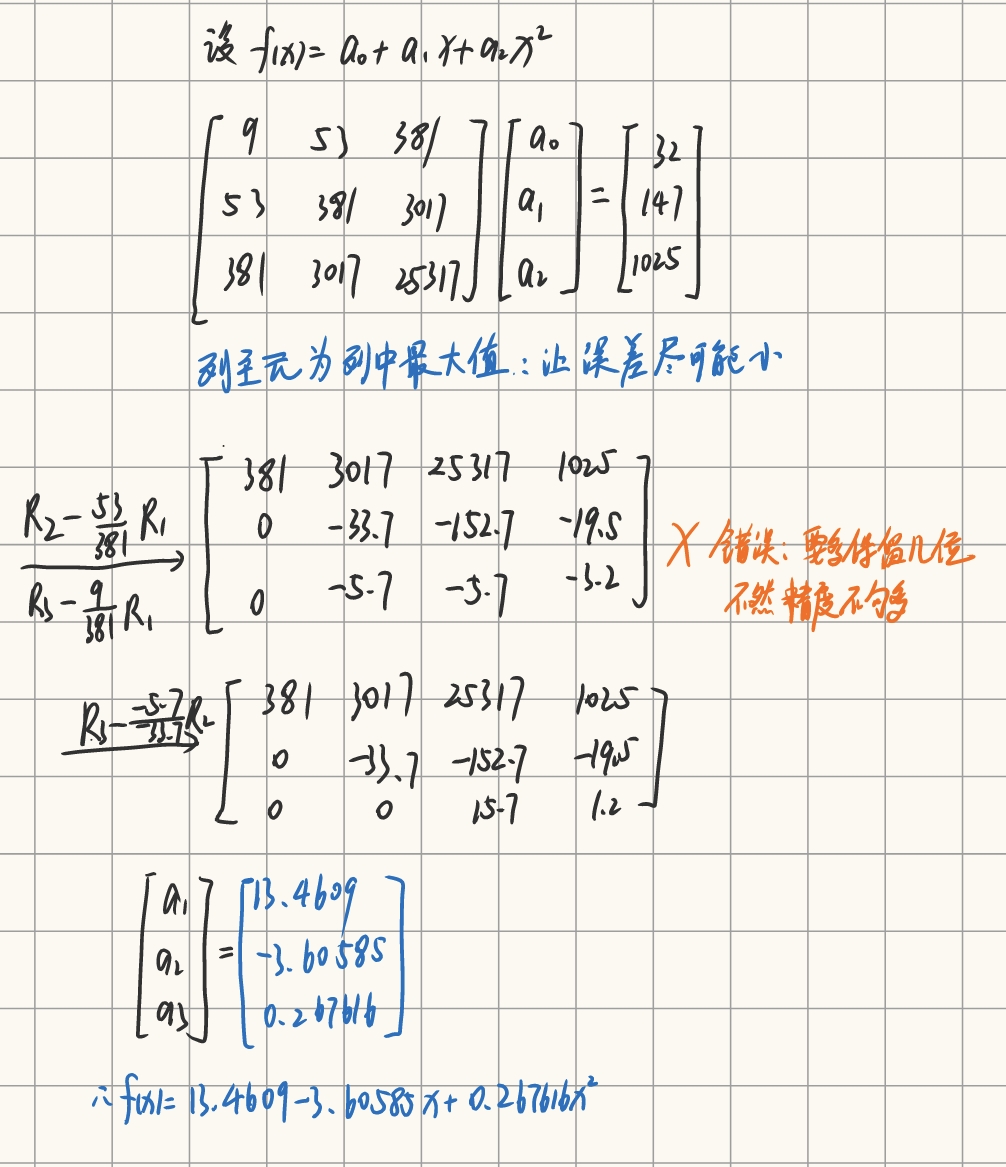 设 f(x) = a₀ + a₁x + a₂x²
[ 9 53 381 ] [ a₀ ] [ 32 ]
[ 53 381 3017 ] [ a₁ ] = [ 147 ]
[ 381 3017 25317 ] [ a₂ ] [ 1025 ]
列主元为列中最大值:让误差尽可能小
R₂ - 53/381 R₁
R₃ - 9/381 R₁
[ 381 3017 25317 1025 ]
[ 0 -33.7 -152.7 -19.5 ]
[ 0 -5.7 -5.7 -3.2 ]
X 错误:要多保留几位
不然精度不够
R₃ - -5.7/-33.7 R₂
[ 381 3017 25317 1025 ]
[ 0 -33.7 -152.7 -19.5 ]
[ 0 0 15.7 1.2 ]
[ a₁ ] [ 13.4609 ]
[ a₂ ] = [ -3.60585 ]
[ a₃ ] [ 0.267616 ]
∴ f(x) = 13.4609 - 3.60585x + 0.267616x²